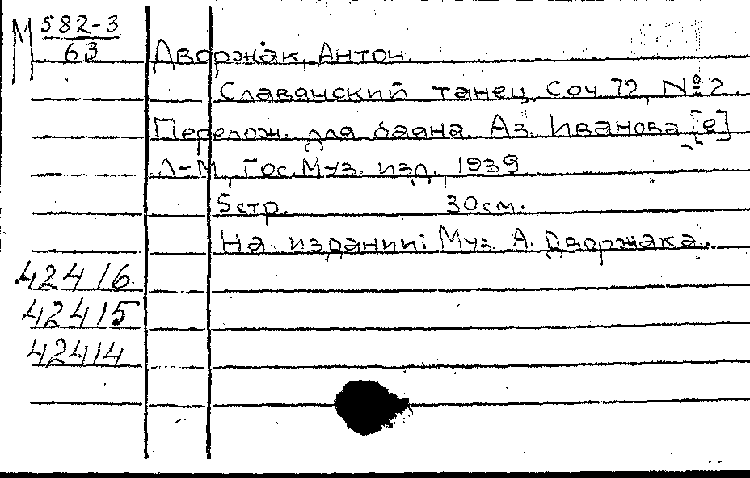 М 582-3
63
Дворжак, Антон.
Славянский танец Соч. 72, №2.
Перелож. для баяна Аз. Иванова [е]
Л-М, Гос. Муз. изд. 1939
5 стр. 30 см.
На издании: Муз. А. Дворжака.
42416
42415
42414